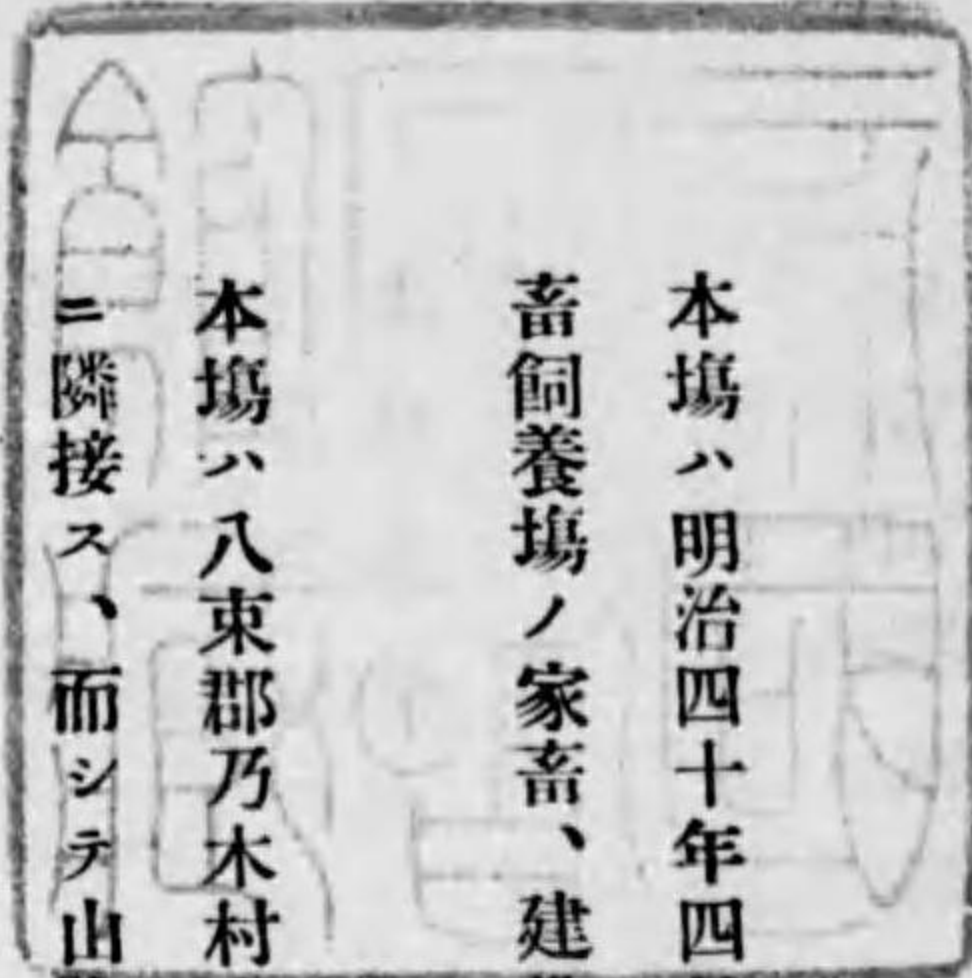 本塲ハ明治四十年四
畜飼養塲ノ家畜、建
本塲ハ八束郡乃木村
ニ隣接ス、而シテ山